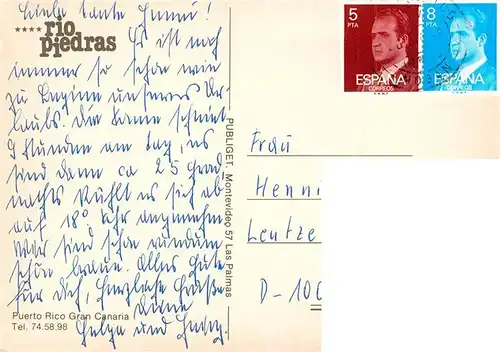 Liebe Tante Henni!
★★★★ rio
piedras
Es ist noch
immer so schön wie
zu Beginn unseres Ur-
laubs. Die Sonne scheint
9 Stunden am Tag, es
sind dann ca 25 Grad,
nachts kühlt es sich ab
auf 18° sehr angenehm
Wir sind schon rundum
schön braun. Alles Gute
für Dich, herzliche Grüße
Deine
Helga und
Puerto Rico Gran Canaria
Tel. 74.58.98
PUBLIGET. Montevideo 57 Las Palmas
5
PTA
ESPAÑA
CORREOS
8
PTA
ESPAÑA
CORREOS
Frau
Henni
Leutze
D-100